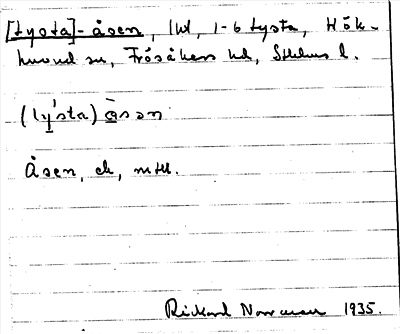 [tysta]-åsen, lkl, 1-6 tysta, Hök-
huvud sn, Frösåkers hd, Sthlms l.
(ly̍sta) å̀sən
Åsen, ek, mtll.
Rickard Norrman 1935.